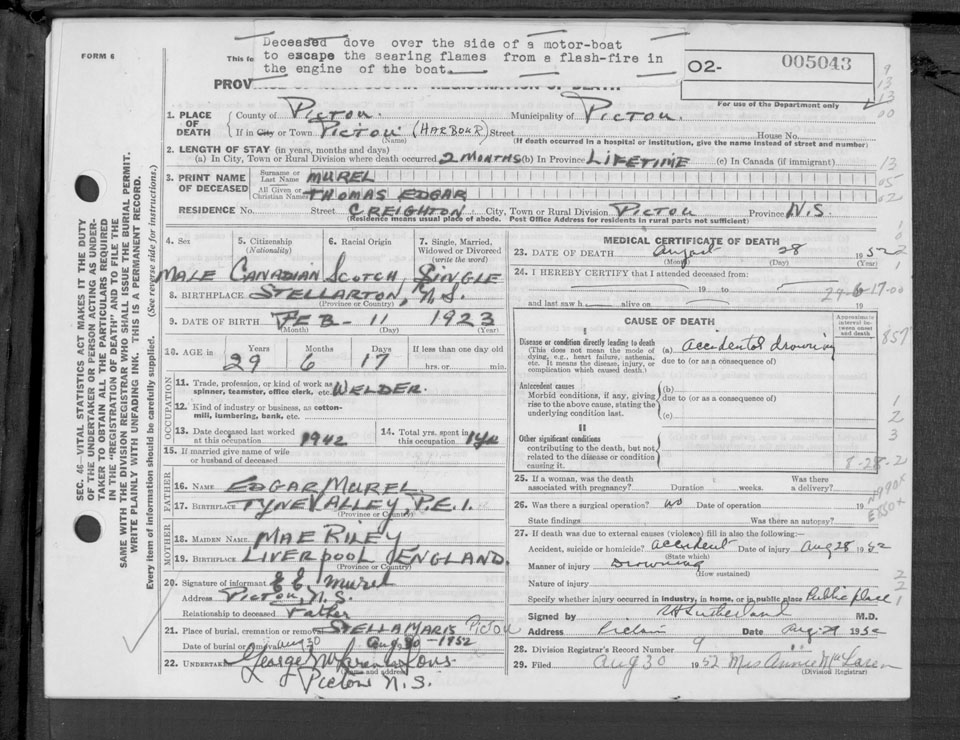 Deceased dove over the side of a motor-boat
to escape the searing flames from a flash-fire in
the engine of the boat.
FORM 6
O2- 005043
For use of the Department only
1. PLACE OF DEATH
County of Pictou. Municipality of Pictou.
If in City or Town Pictou (HARBOUR) Street House No.
(Name) (If death occurred in a hospital or institution, give the name instead of street and number)
2. LENGTH OF STAY (in years, months and days)
(a) In City, Town or Rural Division where death occurred 2 MONTHS (b) In Province LIFETIME (c) In Canada (if immigrant)
3. PRINT NAME OF DECEASED
Surname or Last Name MUREL
All Given or Christian Names THOMAS EDGAR
RESIDENCE No. Street CREIGHTON City, Town or Rural Division PICTOU Province N.S.
(Residence means usual place of abode. Post Office Address for residents in rural parts not sufficient)
4. Sex 5. Citizenship (Nationality) 6. Racial Origin 7. Single, Married, Widowed or Divorced (write the word)
MALE CANADIAN SCOTCH SINGLE
8. BIRTHPLACE STELLARTON, N.S.
(Province or Country)
9. DATE OF BIRTH FEB- 11 1923
(Month) (Day) (Year)
10. AGE in Years Months Days If less than one day old
29 6 17 hrs. or min.
OCCUPATION
11. Trade, profession, or kind of work as spinner, teamster, office clerk, etc. WELDER.
12. Kind of industry or business, as cotton-mill, lumbering, bank, etc.
13. Date deceased last worked at this occupation 1942
14. Total yrs. spent in this occupation 1 yr
15. If married give name of wife or husband of deceased
FATHER
16. NAME EDGAR MUREL
17. BIRTHPLACE TYNE VALLEY P.E.I.
(Province or Country)
MOTHER
18. MAIDEN NAME MAE RILEY
19. BIRTHPLACE LIVERPOOL ENGLAND.
(Province or Country)
20. Signature of informant E E. Murel
Address PICTOU, N.S.
Relationship to deceased Father
21. Place of burial, cremation or removal STELLA MARIS Pictou
Date of burial or removal Aug 30 Aug 30-1952
22. UNDERTAKER George McLaren &
(Name and address)
Pictou N.S.
MEDICAL CERTIFICATE OF DEATH
23. DATE OF DEATH August 28 1952
(Month) (Day) (Year)
24. I HEREBY CERTIFY that I attended deceased from
19 to 19
and last saw h alive on
CAUSE OF DEATH
Approximate interval between onset and death
I
Disease or condition directly leading to death
(This does not mean the mode of dying, e.g., heart failure, asthenia, etc. It means the disease, injury, or complication which caused death.)
(a) accidental drowning
due to (or as a consequence of)
Antecedent causes
Morbid conditions, if any, giving rise to the above cause, stating the underlying condition last.
(b)
due to (or as a consequence of)
(c)
II
Other significant conditions
contributing to the death, but not related to the disease or condition causing it.
8-28-2
25. If a woman, was the death associated with pregnancy? Duration weeks. Was there a delivery?
26. Was there a surgical operation? no Date of operation 19
State findings Was there an autopsy?
27. If death was due to external causes (violence) fill in also the following:—
Accident, suicide or homicide? accident Date of injury Aug 28 1952
(State which)
Manner of injury Drowning
(How sustained)
Nature of injury
Specify whether injury occurred in industry, in home, or in public place Public place
Signed by Sutherland M.D.
Address Pictou Date Aug. 29 1952
28. Division Registrar's Record Number 9
29. Filed Aug 30 1952 Mrs Annie McLaren
(Division Registrar)
SEC. 46—VITAL STATISTICS ACT MAKES IT THE DUTY
OF THE UNDERTAKER OR PERSON ACTING AS UNDER-
TAKER TO OBTAIN ALL THE PARTICULARS REQUIRED
IN THE "REGISTRATION OF DEATH" AND TO FILE THE
SAME WITH THE DIVISION REGISTRAR WHO SHALL ISSUE THE BURIAL PERMIT.
WRITE PLAINLY WITH UNFADING INK. THIS IS A PERMANENT RECORD.
Every item of information should be carefully supplied. (See reverse side for instructions.)